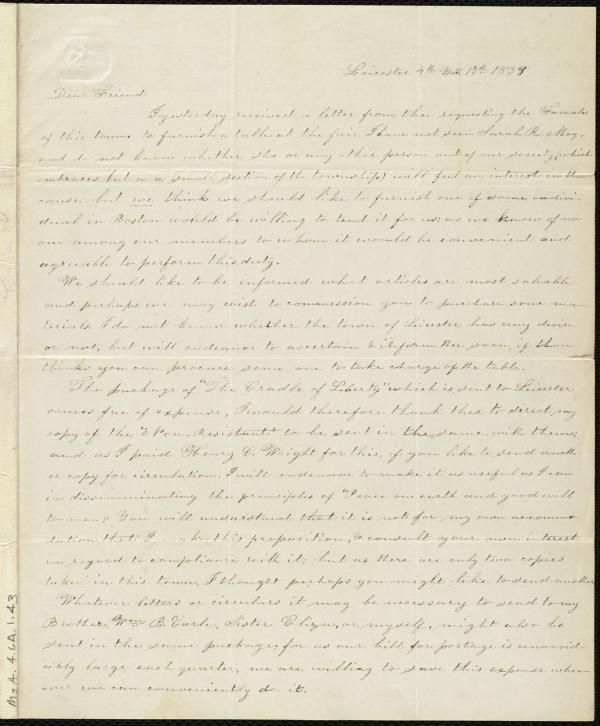 Leicester 4th Mo. 17th 1839
Dear Friend
I yesterday received a letter from thee requesting the Females
of this town to furnish a table at the fair. I have not seen Sarah R. May,
and do not know whether she or any other person out of our society, (which
embraces but a small section of the township) will feel an interest in the
cause, but we think we should like to furnish one if some indivi-
dual in Boston would be willing to tend it for us; as we know of no
one among our members to whom it would be convenient and
agreeable to perform this duty.
We should like to be informed what articles are most saleable
and perhaps we may wish to commission you to purchase some ma-
terials. I do not know whether the town of Leicester has any device
or not, but will endeavor to ascertain & inform thee soon, if thou
thinks you can procure some one to take charge of the table.
The package of "The Cradle of Liberty" which is sent to Leicester
comes free of expense, I would therefore thank thee to direct my
copy of the "Non-Resistant" to be sent in the same, with them;
and as I paid Henry C. Wright for this, if you like to send anoth-
er copy for circulation, I will endeavor to make it as useful as I can
in disseminating the principles of "Peace on earth and good will
to men." You will understand that it is not for my own accommo-
dation that I make this proposition, & consult your own interest
in regard to compliance with it; but as there are only two copies
taken in this town, I thought perhaps you might like to send another.
Whatever letters or circulars it may be necessary to send to my
Brother, Wm B. Earle, Sister Eliza, or myself, might also be
sent in the same package; for as our bill for postage is unavoid-
ably large each quarter, we are willing to save this expense when-
ever we can conveniently do it.
Ms A. 4.6A.1.43